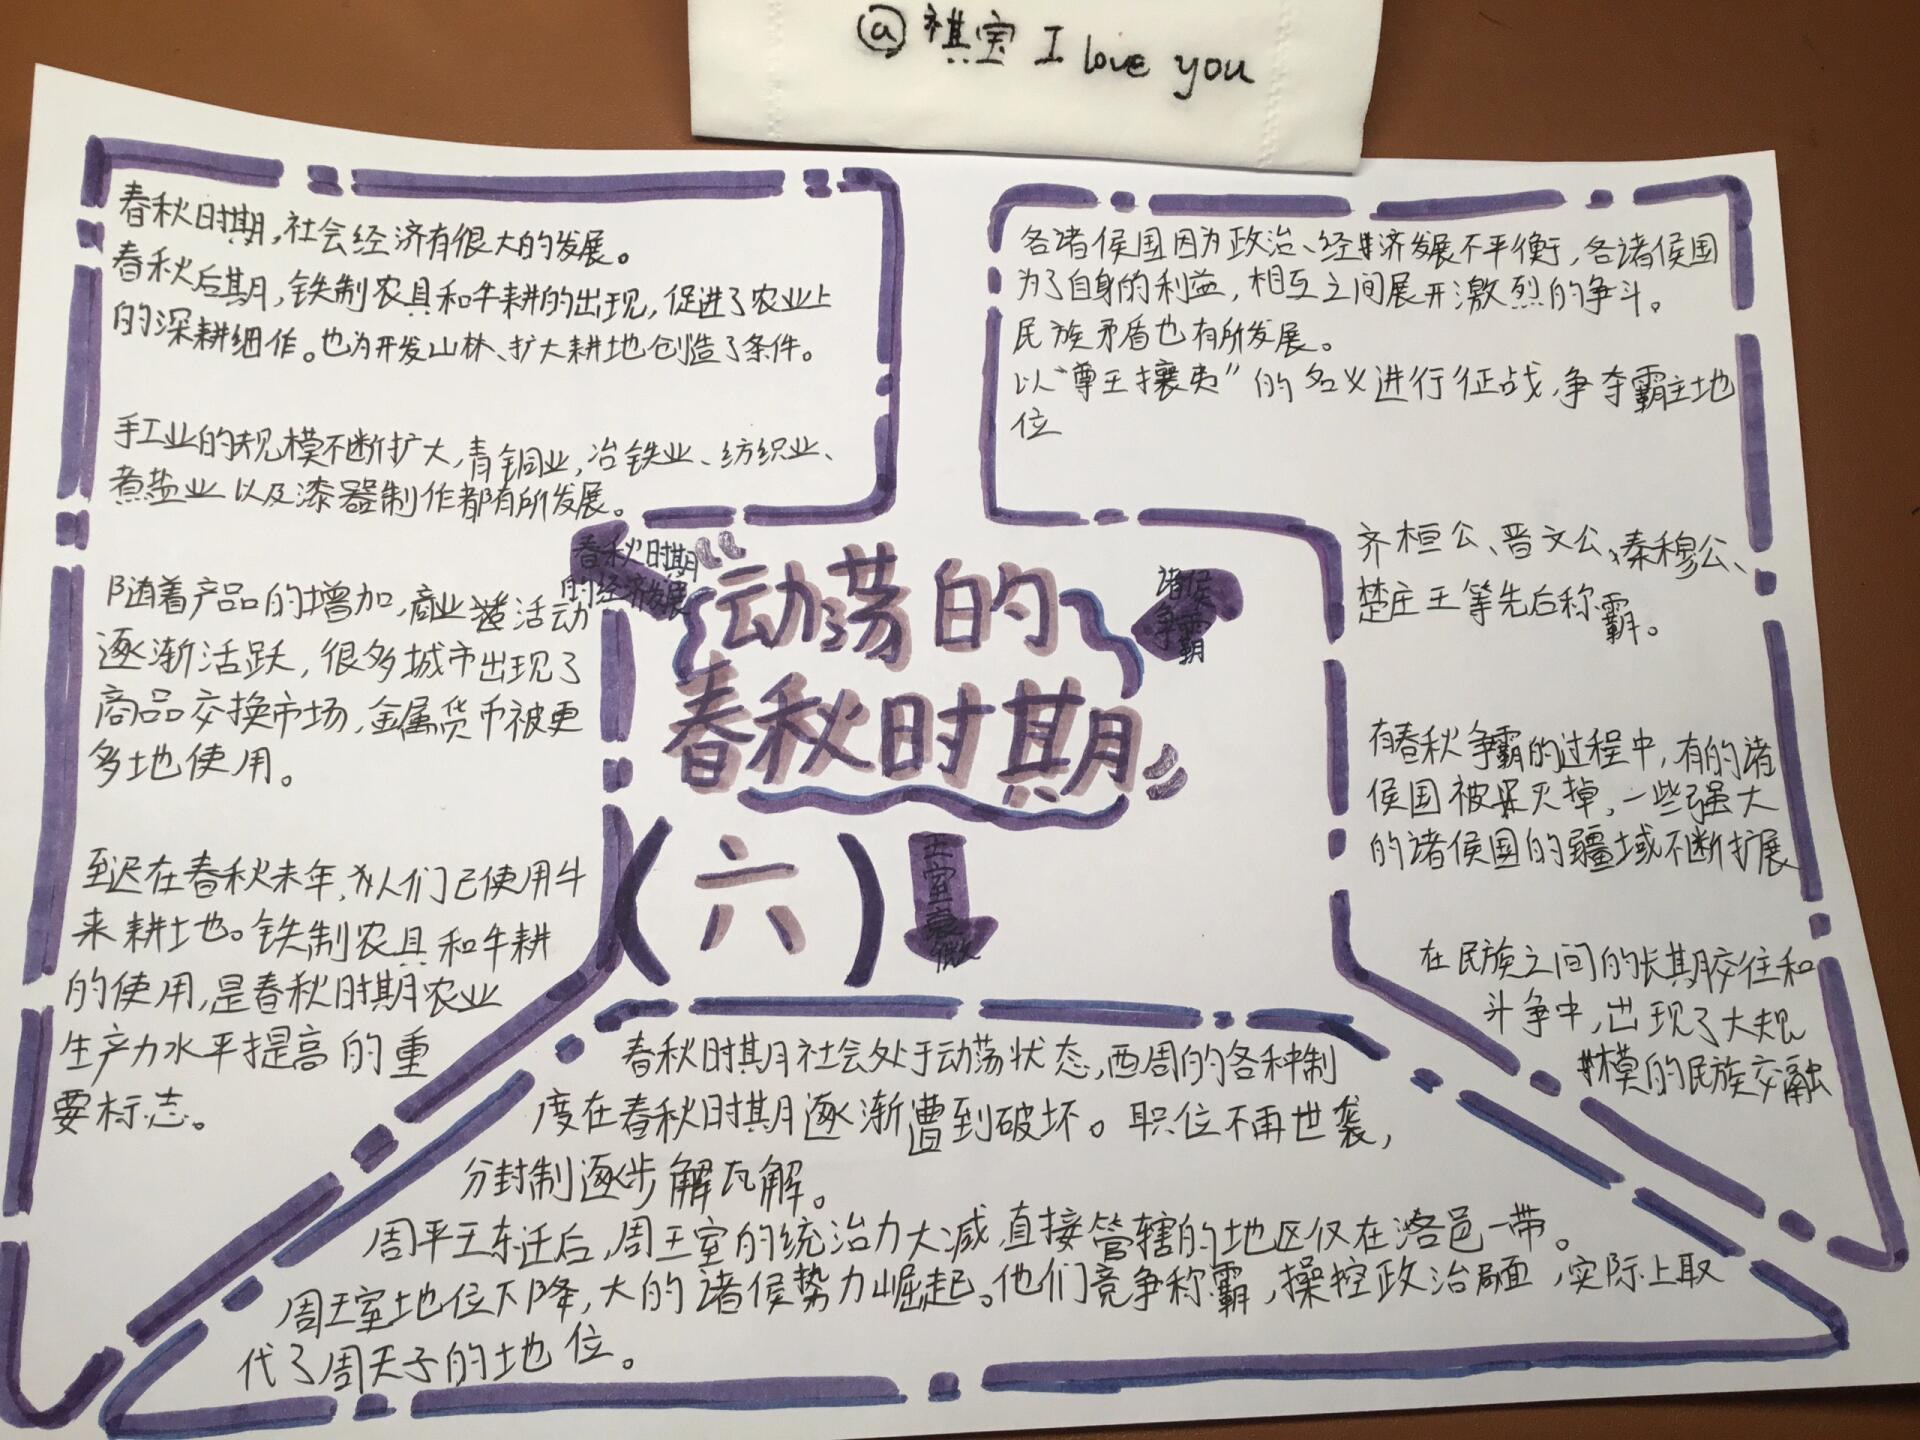 @祺宝 I love you
春秋时期,社会经济有很大的发展。
春秋后期,铁制农具和牛耕的出现,促进了农业上
的深耕细作。也为开发山林、扩大耕地创造了条件。
手工业的规模不断扩大,青铜业,冶铁业、纺织业、
煮盐业以及漆器制作都有所发展。
随着产品的增加,商业活动
逐渐活跃,很多城市出现了
商品交换市场,金属货币被更
多地使用。
至迟在春秋末年,人们已使用牛
来耕地。铁制农具和牛耕
的使用,是春秋时期农业
生产力水平提高的重
要标志。
春秋时期
的经济发展
“动荡的
春秋时期”
(六)
诸侯
争霸
王室衰微
各诸侯国因为政治、经济发展不平衡,各诸侯国
为了自身的利益,相互之间展开激烈的争斗。
民族矛盾也有所发展。
以“尊王攘夷”的名义进行征战,争夺霸主地
位
齐桓公、晋文公、秦穆公、
楚庄王等先后称霸。
有春秋争霸的过程中,有的诸
侯国被灭掉,一些强大
的诸侯国的疆域不断扩展
在民族之间的长期交往和
斗争中,出现了大规
模的民族交融
春秋时期社会处于动荡状态,西周的各种制
度在春秋时期逐渐遭到破坏。职位不再世袭,
分封制逐步解瓦解。
周平王东迁后,周王室的统治力大减,直接管辖的地区仅在洛邑一带。
周王室地位下降,大的诸侯势力崛起。他们竞争称霸,操控政治局面,实际上取
代了周天子的地位。